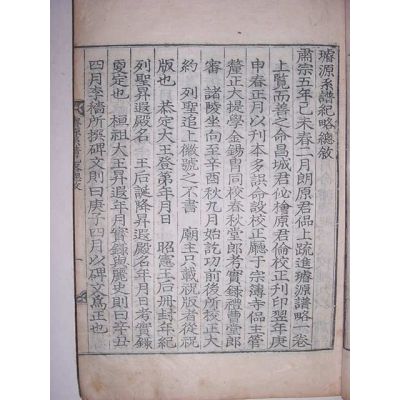 璿源系譜紀略總敘
肅宗五年己未春二月朗原君偘上疏進璿源譜略一卷
上覽而善之命昌城君佖檜原君倫校正刊印翌年庚
申春正月以刊本多誤命設校正廳于宗簿寺偘主管
釐正大提學金錫胄同校春秋堂郞考實錄禮曹堂郞
審 諸陵坐向至辛酉秋九月始訖功前後所校正大
約 列聖追上徽號之不書 廟主只載祝版者從祝
版也 恭定大王登第年月日 昭憲王后冊封年紀
列聖昇遐殿名 王后誕降昇遐殿名年月日考實錄
叓定也 桓祖大王昇遐年月實錄與麗史則曰辛丑
四月李穡所撰碑文則曰庚子四月以碑文爲正也